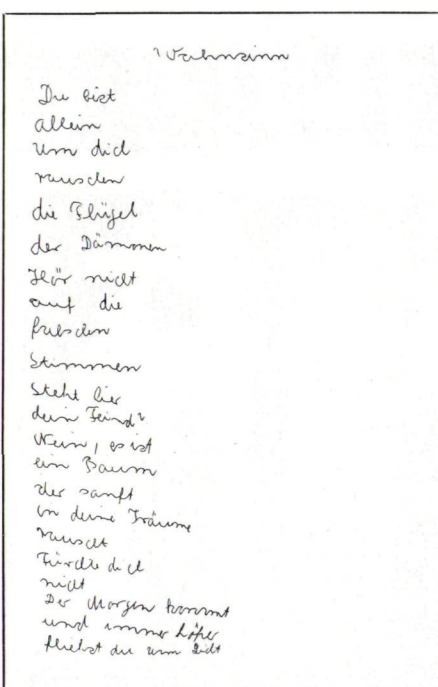 Wahnsinn
Du bist
allein
Um dich
rauschen
die Flügel
der Dämonen
Hör nicht
auf die
falschen
Stimmen
Steht hier
dein Feind?
Nein, es ist
ein Baum
der sanft
in deine Träume
rauscht
Fürchte dich
nicht
Der Morgen kommt
und immer höher
fliehst du zum Licht